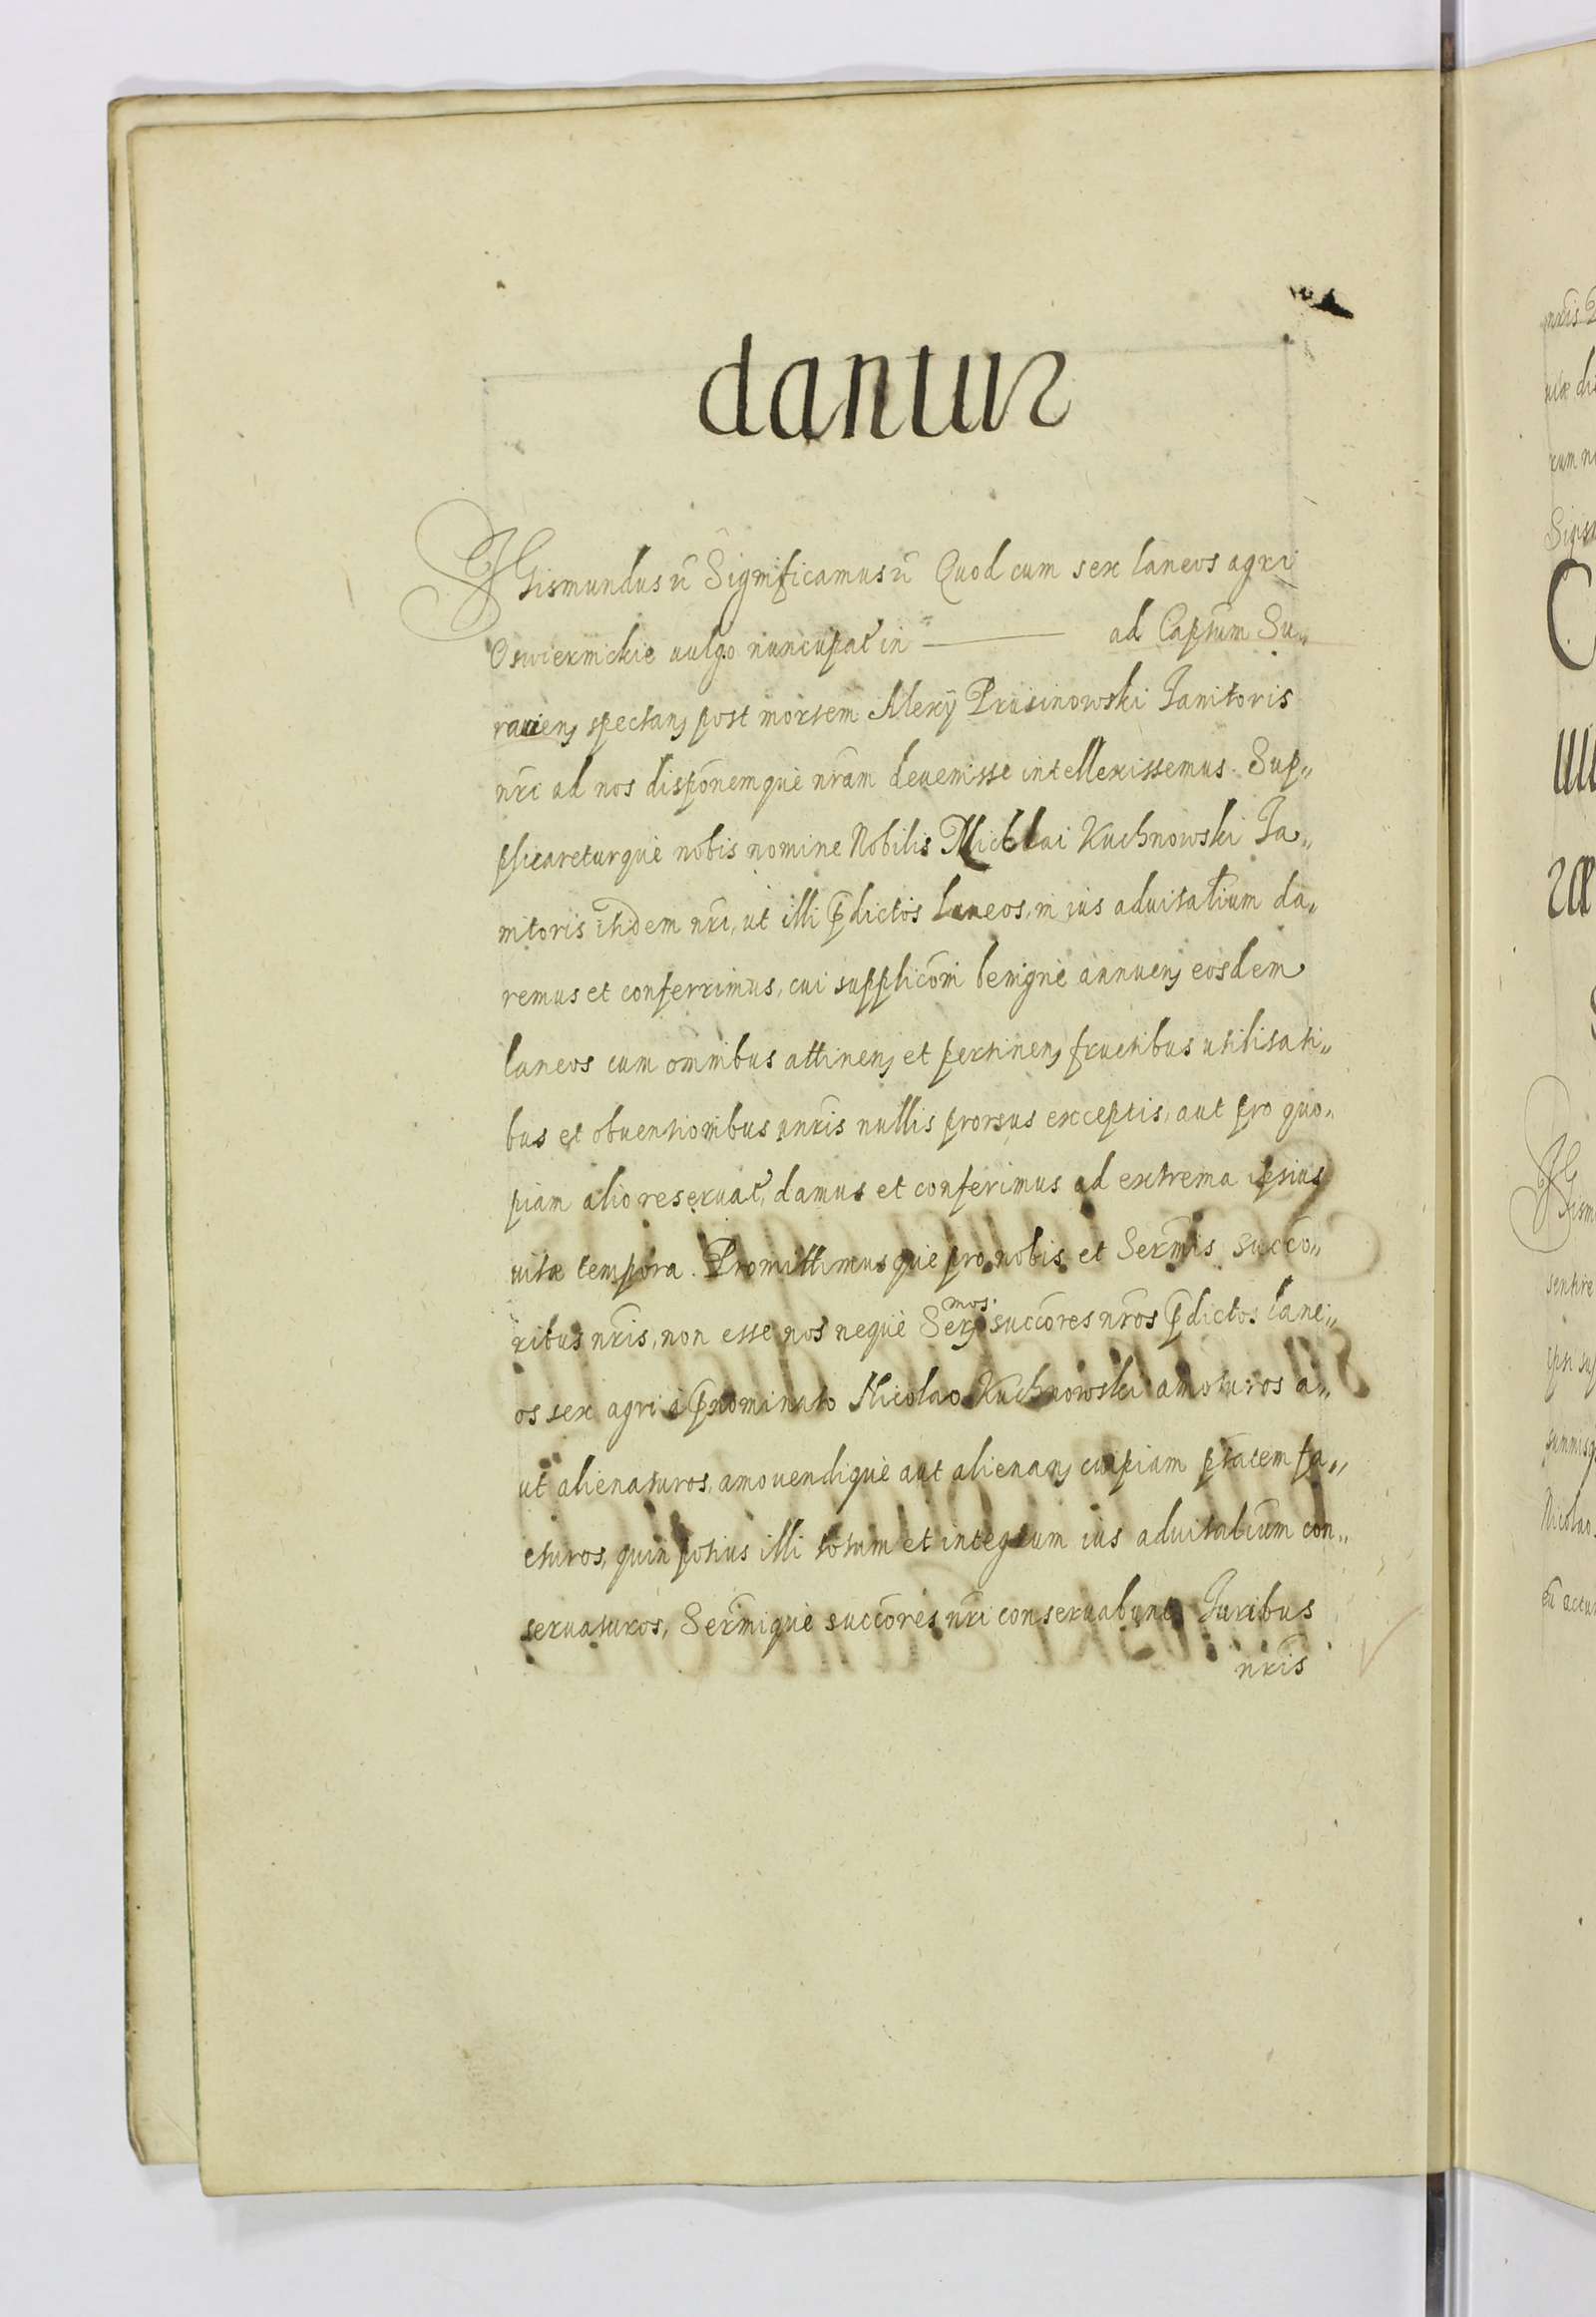 dantur
Sigismundus etc Significamus etc Quod cum sex laneos agri
Oswiernickie uulgo nuncupat in ——— ad Captum Su„
raiens spectans post mortem Alexij Prusinowski Janitoris
nri ad nos disponemque nram deuenisse intellexissemus. Sup„
plicareturque nobis nomine Nobilis Nicolai Kuchnowski Ja„
nitoris itidem nri, ut illi pdictos laneos, in ius aduitalium da„
remus et conferrimus, cui suppliconi benigne annuens eosdem
laneos cum omnibus attinens et pertinens fructibus utilitati„
bus et obuentionibus unris nullis prorsus exceptis, aut pro quo„
piam alio reseruat, damus et conferimus ad extrema ipsius
uitæ tempora. Promittimusque pro nobis et Sermis succo„
ribus nris, non esse nos neque Sermos succores nros pdictos lane„
os sex agri a pnominato Nicolao Kuchnowski amoturos a„
ut alienaturos, amouendique aut alienans cuipiam ptatem fa„
cturos, quin potius illi totum et integrum ius aduitalium con„
seruaturos, Sermique succores nri conseruabunt, Juribus
nris